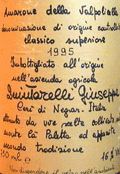 Amarone della Valpolicella
denominazione di origine controllata
classico superiore
1995
Imbottigliato all'origine
nell'azienda agricola
Quintarelli Giuseppe
Cerè di Negrar - Italia
ottenuto da uve scelte coltivate
monte Cà Paletta ed appassite
secondo tradizione
750 ml e 16 %